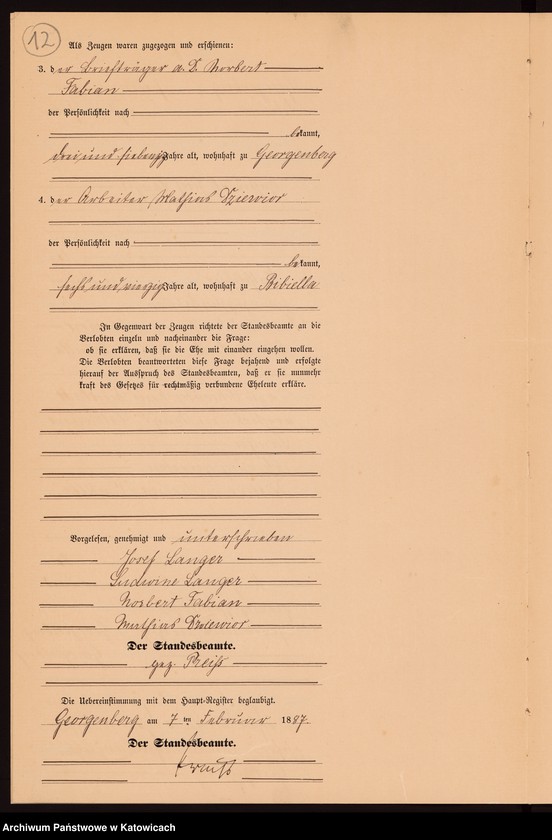 12
Als Zeugen waren zugezogen und erschienen:
3. der Briefträger a. D. Norbert
Fabian
der Persönlichkeit nach
bekannt,
drei und siebenzig Jahre alt, wohnhaft zu Georgenberg
4. der Arbeiter Mathias
der Persönlichkeit nach
bekannt,
sechs und vierzig Jahre alt, wohnhaft zu Bibiella
In Gegenwart der Zeugen richtete der Standesbeamte an die
Verlobten einzeln und nacheinander die Frage:
ob sie erklären, daß sie die Ehe mit einander eingehen wollen.
Die Verlobten beantworteten diese Frage bejahend und erfolgte
hierauf der Ausspruch des Standesbeamten, daß er sie nunmehr
kraft des Gesetzes für rechtmäßig verbundene Eheleute erkläre.
Vorgelesen, genehmigt und unterschrieben
Josef Langer
Ludwine Langer
Norbert Fabian
Mathias
Der Standesbeamte.
gez. Preiß
Die Uebereinstimmung mit dem Haupt-Register beglaubigt.
Georgenberg am 7 ten Februar 1887
Der Standesbeamte.
Archiwum Państwowe w Katowicach